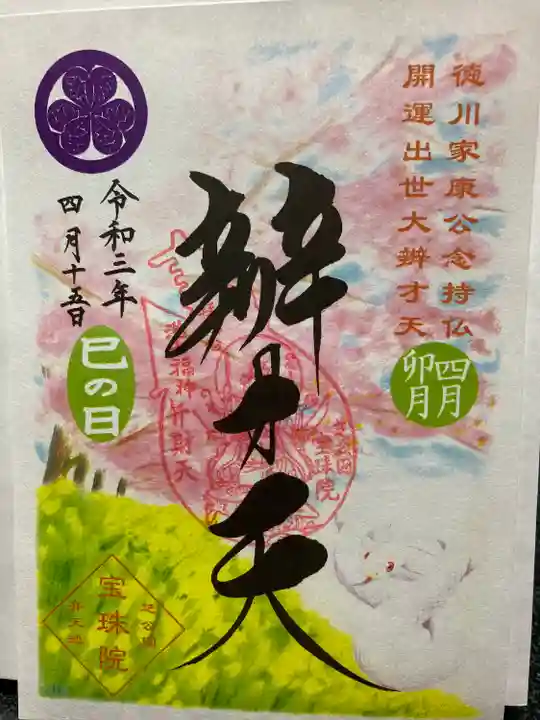 徳川家康公念持仏
開運出世大辨才天
四月
卯月
辧才天
令和三年
四月十五日
巳の日
芝公園
宝珠院
弁天池
芝公園
宝珠院
福神弁財天